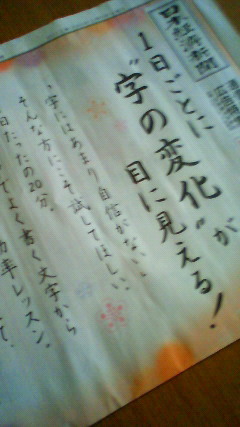 日本経済新聞
1日ごとに
"字の変化"が
目に見える!
"字にはあまり自信がない"
そんな方にこそ試してほしい。
1日たったの20分。
よく書く文字から
効率レッスン。